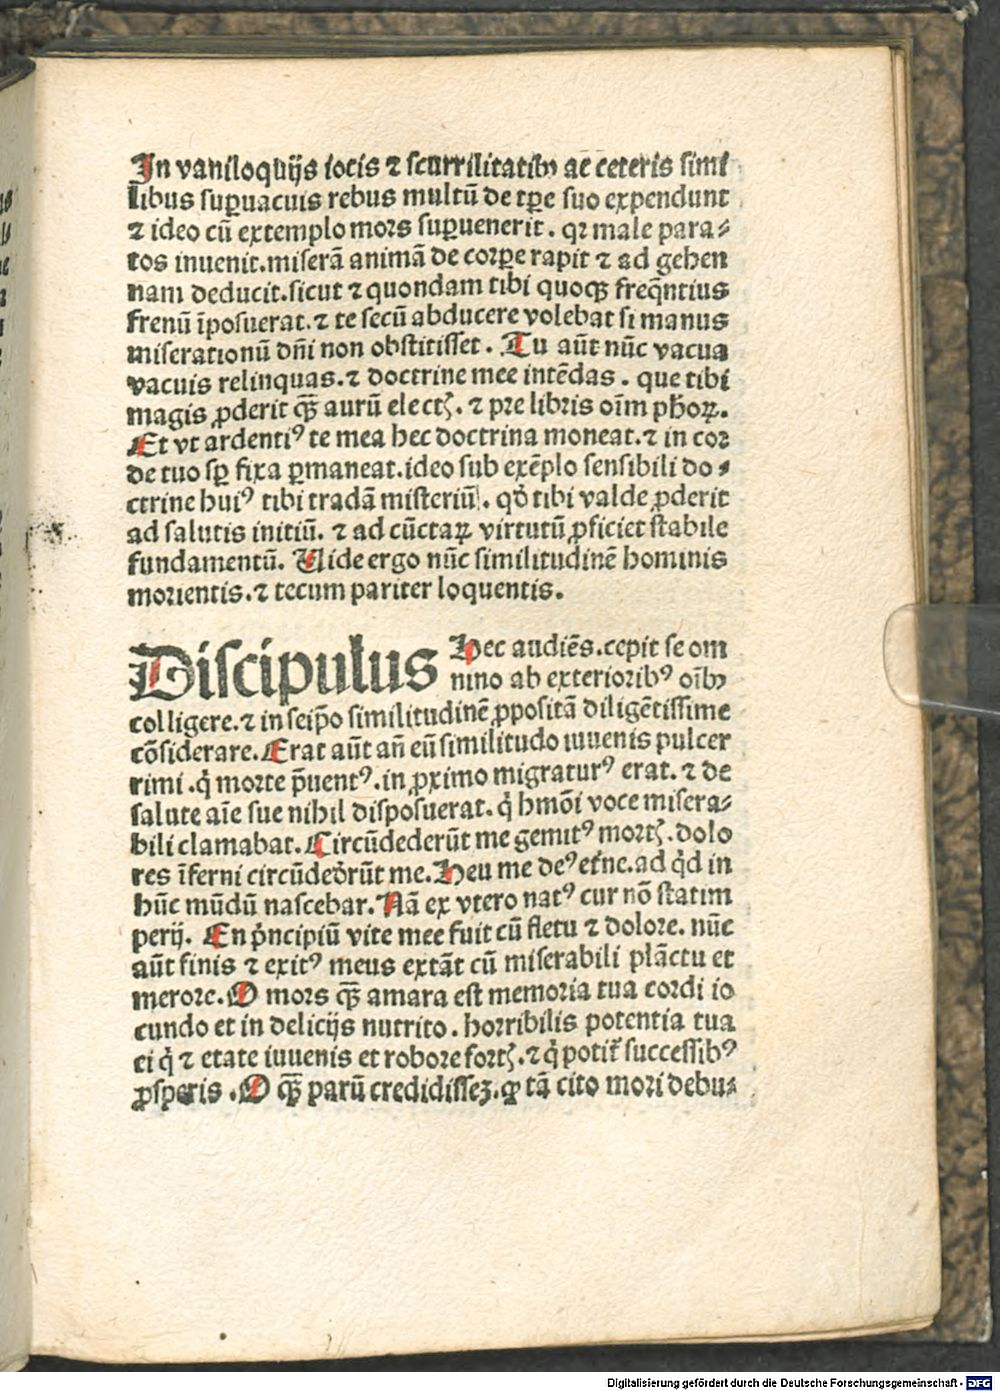 In vaniloquijs iocis ⁊ scurrilitatibꝫ ac ceteris simi
libus suꝑuacuis rebus multū de tꝑe suo expendunt
⁊ ideo cū extemplo mors suꝑuenerit. qꝛ male para⸗
tos inuenit.miserā animā de corꝑe rapit ⁊ ad gehen
nam deducit.sicut ⁊ quondam tibi quoqꝫ freq̄ntius
frenū īposuerat.⁊ te secū abducere volebat si manus
miserationū dn̄i non obstitisset. Tu aūt nūc vacua
vacuis relinquas.⁊ doctrine mee intēdas. que tibi
magis ꝓderit qꝫ̄ aurū electꝭ. ⁊ pre libris oīm ph̄oꝝ.
Et vt ardentiꝰ te mea hec doctrina moneat.⁊ in cor
de tuo sꝑ fixa ꝑmaneat.ideo sub exēplo sensibili do⸗
ctrine huiꝰ tibi tradā misteriū. qd̓ tibi valde ꝓderit
ad salutis initiū. ⁊ ad cūctaꝝ virtutū ꝓficiet stabile
fundamentū. Uide ergo nūc similitudinē hominis
morientis.⁊ tecum pariter loquentis.
Discipulus Hec audiēs.cepit se om
nino ab exterioribꝰ oībꝫ
colligere.⁊ in seip̄o similitudinē ꝓpositā diligētissime
cōsiderare.Erat aūt an̄ eū similitudo iuuenis pulcer
rimi .q̇ morte p̄uentꝰ.in ꝓximo migraturꝰ erat.⁊ de
salute aīe sue nihil disposuerat.q̇ hm̄oi voce misera⸗
bili clamabat.Circūdederūt me gemitꝰ mortꝭ.dolo
res īferni circūded̓rūt me.Heu me deꝰ et̓ne.ad q̇d in
hūc mūdū nascebar.Nā ex vtero natꝰ cur nō statim
perij. En p̓ncipiū vite mee fuit cū fletu ⁊ dolore. nūc
aūt finis ⁊ exitꝰ meus extāt cū miserabili plāctu et
merore.O mors qꝫ̄ amara est memoria tua cordi io
cundo et in delicijs nutrito. horribilis potentia tua
ei q̇ ⁊ etate iuuenis et robore fortꝭ.⁊ q̇ potit̓ successibꝰ
ꝓsperis .O qꝫ̄ parū credidissꝫ.ꝙ tā cito mori debu⸗
Digitalisierung gefördert durch die Deutsche Forschungsgemeinschaft - DFG